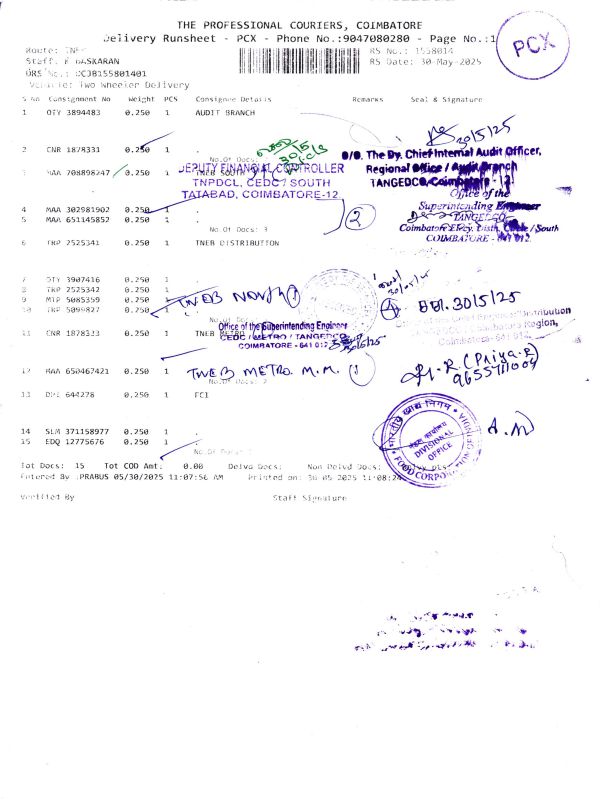 THE PROFESSIONAL COURIERS, COIMBATORE
Delivery Runsheet - PCX - Phone No.:9047080280 - Page No.:1
PCX
Route: TNEB
RS No.: 1558014
Staff: BASKARAN
RS Date: 30-May-2025
DRS No.: CJB155801401
Vehicle: Two Wheeler Delivery
S No Consignment No Weight PCS Consignee Details Remarks Seal & Signature
1 OTY 3894483 0.250 1 AUDIT BRANCH
30/5/25
2 CNR 1878331 0.250 1
No.Of Docs:
30/5
O/O. The Dy. Chief Internal Audit Officer,
Regional Office / Audit Branch
TANGEDCO, Coimbatore - 12
3 MAA 708898247 1 TNEB SOUTH
DEPUTY FINANCIAL CONTROLLER
TNPDCL, CEDC / SOUTH
TATABAD, COIMBATORE-12
Office of the
Superintending Engineer
TANGEDCO
Coimbatore Elecy. Distn. Circle / South
COIMBATORE - 641 012.
4 MAA 302981902 0.250 1
5 MAA 651145852 0.250 1
2
No Of Docs: 3
6 TRP 2525341 0.250 1 TNEB DISTRIBUTION
7 OTY 3907416 0.250 1
8 TRP 2525342 0.250 1
9 MTP 5085359 0.250 1
10 TRP 5099827 0.250 1
TNEB North 1
4
30/5/25
Distribution
Coimbatore Region,
Coimbatore - 641 014.
11 CNR 1878333 0.250 1 TNEB METRO
Office of the Superintending Engineer
CEDC / METRO / TANGEDCO
COIMBATORE - 641 012
30/5/25
12 MAA 650467421 0.250 1
TNEB METRO. M.M. 1
No.Of Docs: 2
R (Priya.R)
9655711009
13 DPI 644278 0.250 1 FCI
14 SLM 371158977 0.250 1
15 EDQ 12775676 0.250 1
भारतीय खाद्य निगम
मंडल कार्यालय
DIVISIONAL
OFFICE
FOOD CORPORATION OF INDIA
Tot Docs: 15 Tot COD Amt: 0.00 Delvd Docs: Non Delvd Docs:
Entered By :PRABUS 05/30/2025 11:07:56 AM Printed on: 30-05-2025 11:08:24
Verified By Staff Signature